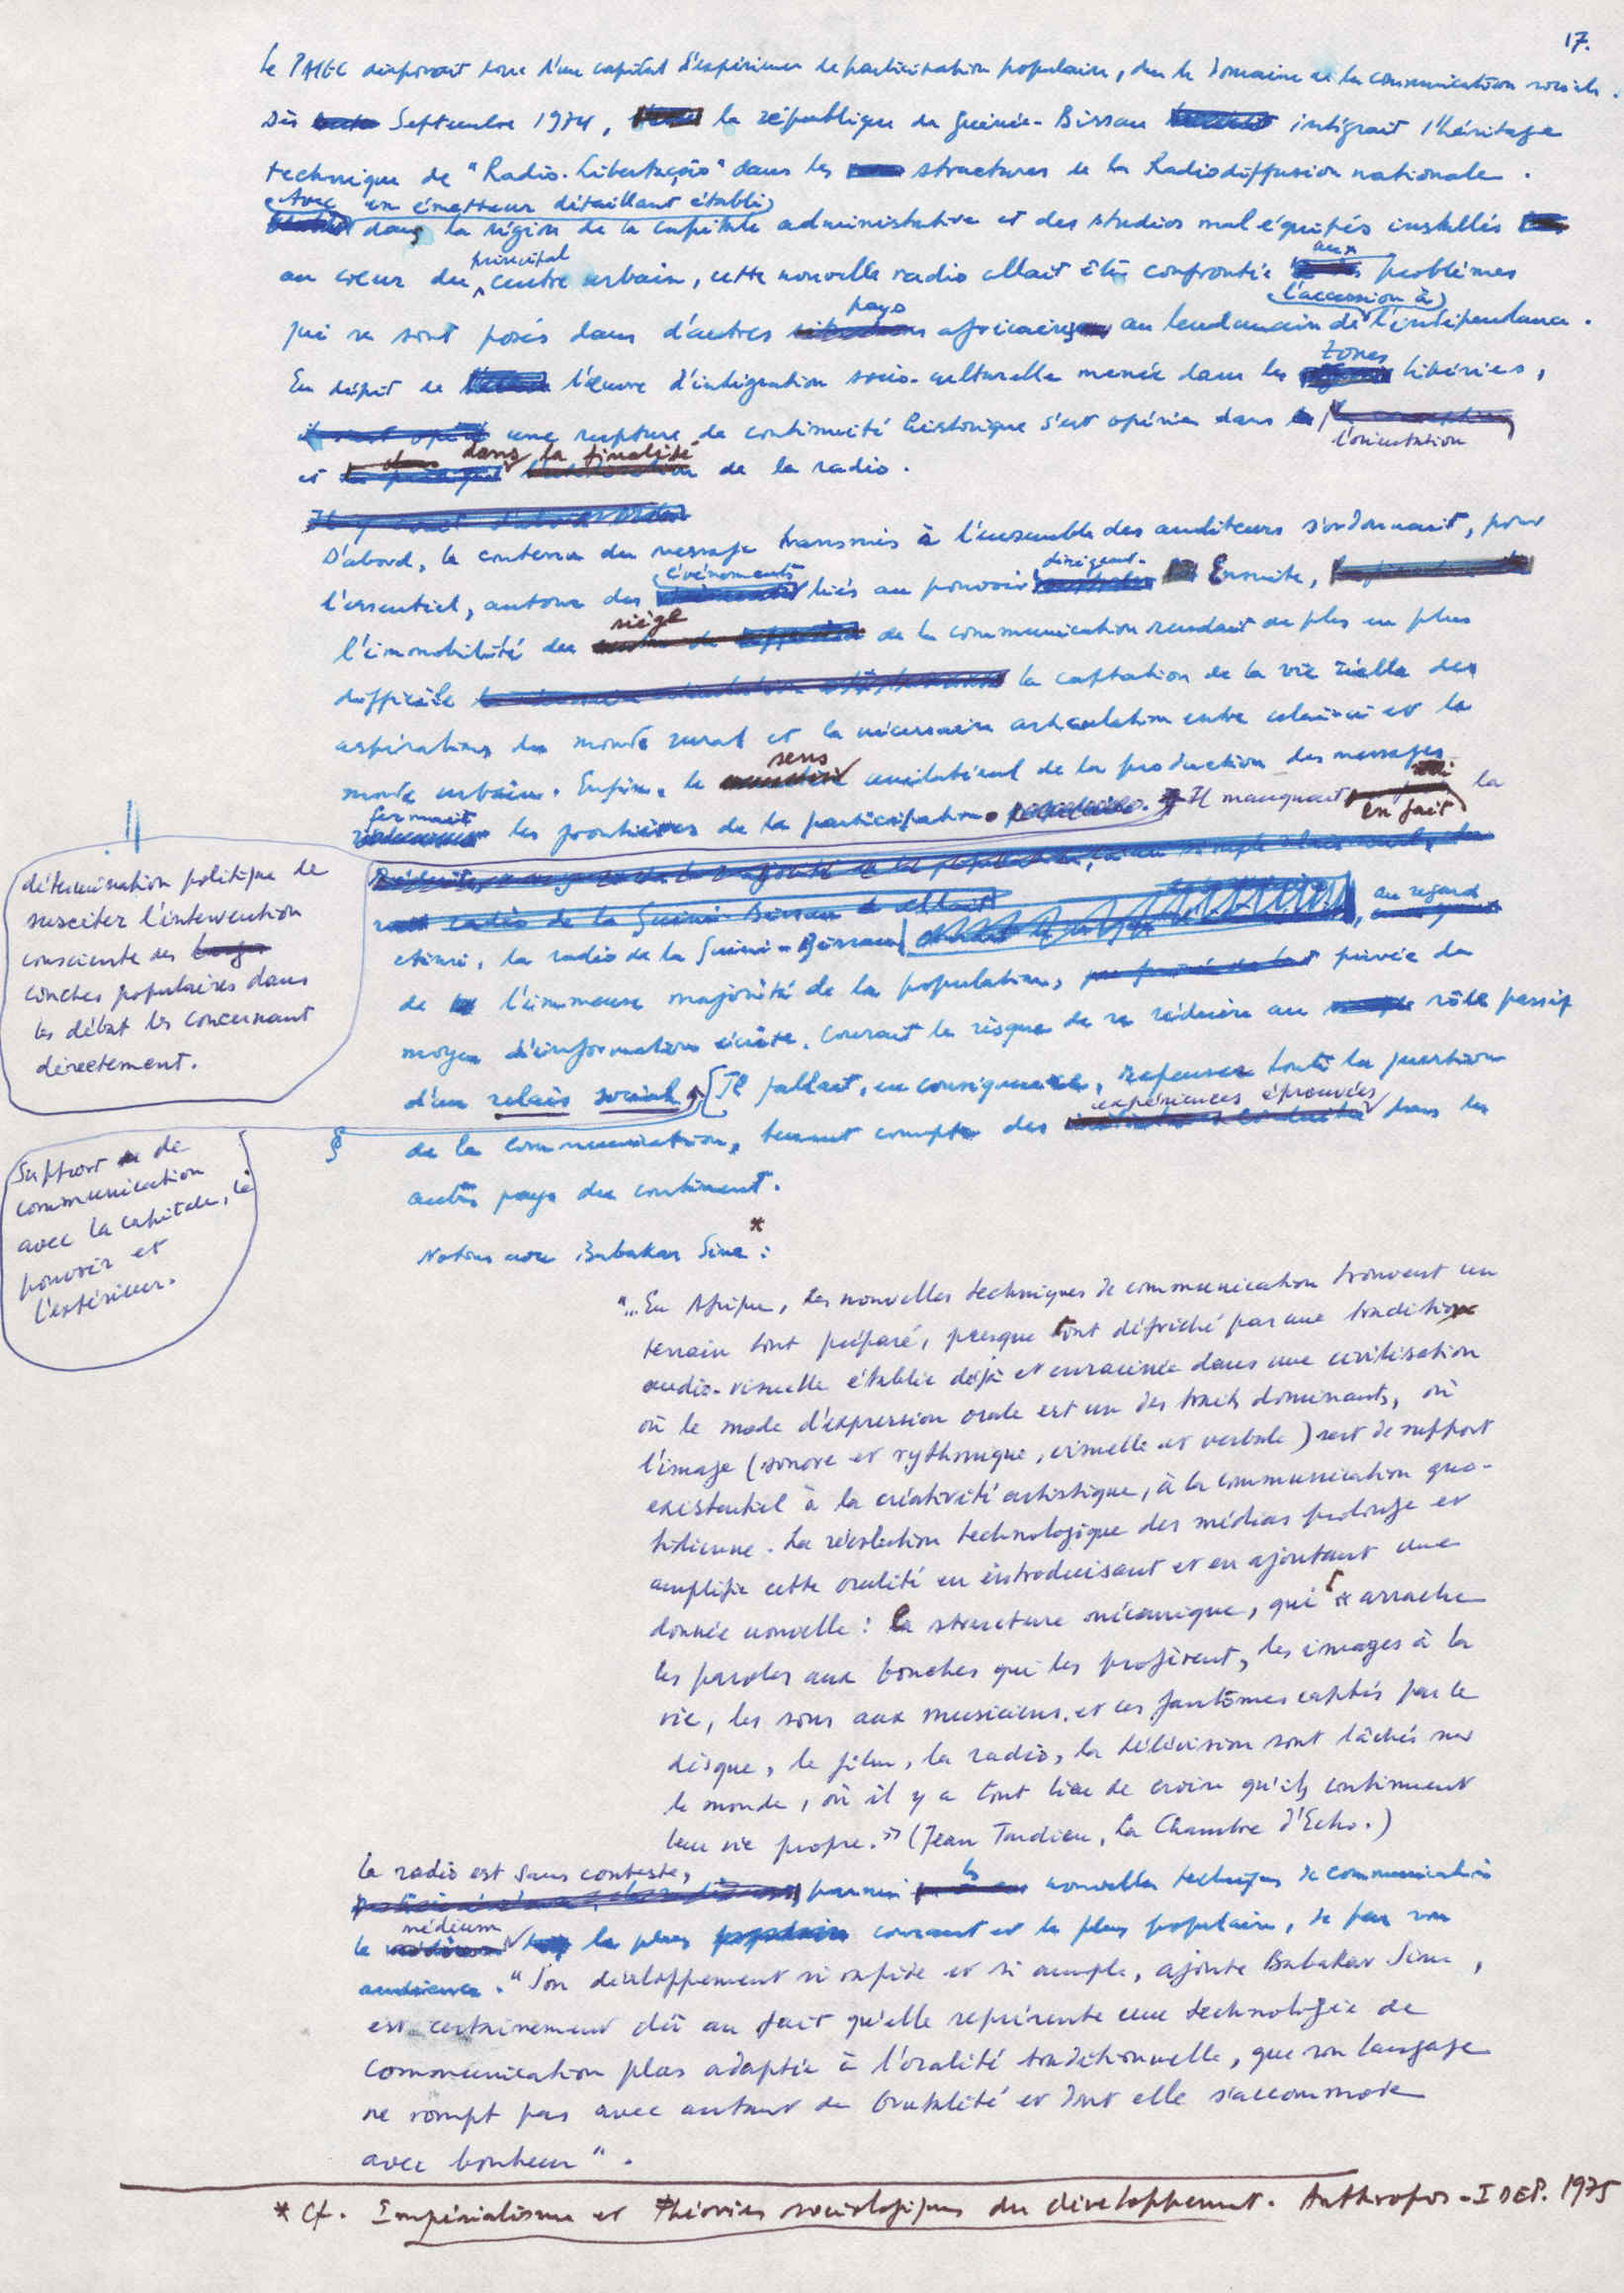 17.
Le PAIGC disposait donc d'un capital d'expérience de participation populaire, dans le domaine de la communication sociale.
Dès Septembre 1974, la république de Guinée-Bissau intégrait l'héritage
technique de "Radio-Libertação" dans les structures de la Radiodiffusion nationale.
Avec un émetteur détaillant établi
dans la région de la capitale administrative et des studios mal équipés installés
principal
au cœur du centre urbain, cette nouvelle radio allait être confrontée aux problèmes
pays
l'accession à
qui se sont posés dans d'autres africains au lendemain de l'indépendance.
zones
En dépit de l'œuvre d'intégration socio-culturelle menée dans les libérées,
une rupture de continuité historique s'est opérée dans
l'orientation
dans la finalité
et de la radio.
D'abord, le contenu du message transmis à l'ensemble des auditeurs s'ordonnait, pour
événements
dirigeant.
l'essentiel, autour des liés au pouvoir Ensuite,
siège
l'immobilité du de la communication rendait de plus en plus
difficile la captation de la vie réelle des
aspirations du monde rural et la nécessaire articulation entre celui-ci et le
sens
monde urbain. Enfin, le unilatéral de la production des messages
fermait
les frontières de la participation. Il manquait en fait la
détermination politique de
susciter l'intervention
consciente des
couches populaires dans
les débat les concernant
directement.
au regard
ainsi, la radio de la Guinée-Bissau,
de l'immense majorité de la population, privée du
moyen d'information écrite, courait le risque de se réduire au rôle passif
d'un relais social Il fallait, en conséquence, repenser toute la question
expériences éprouvées
§ de la communication, tenant compte des dans les
autres pays du continent.
Support de
communication
avec la capitale, le
pouvoir et
l'extérieur.
Notons avec Babakar Sine * :
"...En Afrique, les nouvelles techniques de communication trouvent un
terrain tout préparé, presque tout défriché par une tradition
audio-visuelle établie déjà et enracinée dans une civilisation
où le mode d'expression orale est un des traits dominants, où
l'image (sonore et rythmique, visuelle et verbale) sert de support
existentiel à la créativité artistique, à la communication quo-
tidienne. La révolution technologique des médias prolonge et
amplifie cette oralité en introduisant et en ajoutant une
donnée nouvelle : la structure mécanique, qui "arrache
les paroles aux bouches qui les profèrent, les images à la
vie, les sons aux musiciens, et ces fantômes captés par le
disque, le film, la radio, la télévision sont lâchés sur
le monde, où il y a tout lieu de croire qu'ils continuent
leur vie propre." (Jean Tardieu, La Chambre d'Echo.)
La radio est sans conteste,
parmi les nouvelles techniques de communication
médium
le le plus courant et le plus populaire, de par son
audience. "Son développement si rapide et si ample, ajoute Babakar Sine,
est certainement dû au fait qu'elle représente une technologie de
communication plus adaptée à l'oralité traditionnelle, que son langage
ne rompt pas avec autant de brutalité et dont elle s'accommode
avec bonheur".
* Cf. Impérialisme et Théories sociologiques du développement. Anthropos-IDEP. 1975